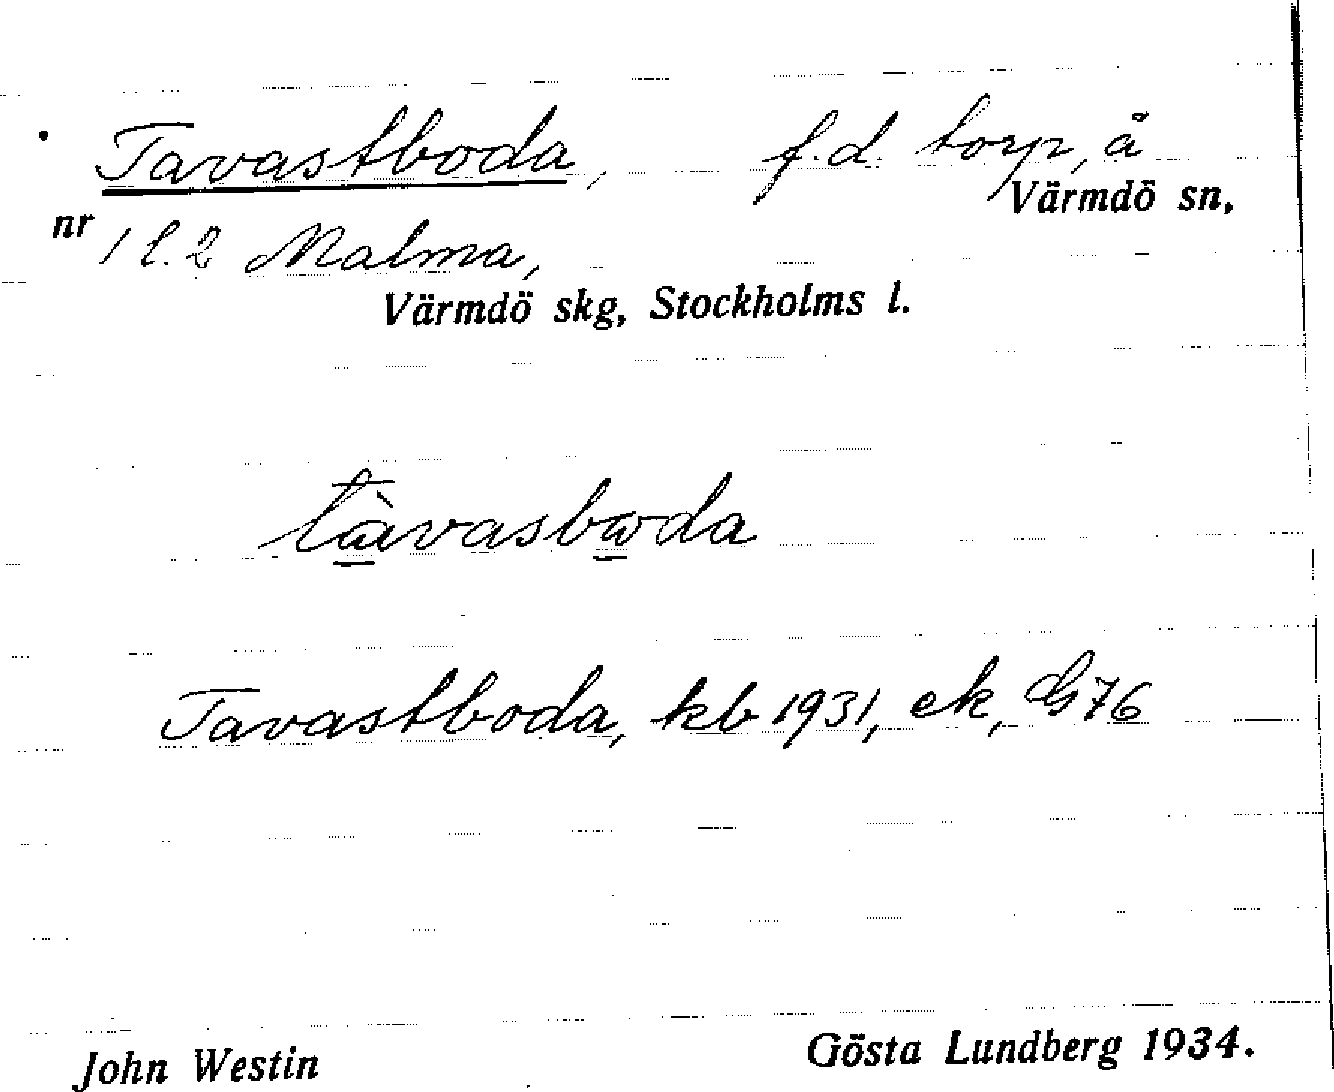 Tavastboda, f.d. torp, å
Värmdö sn,
nr 1 l. 2 Malma,
Värmdö skg, Stockholms l.
tàvasbωda
Tavastboda, kb 1931, ek, G76
John Westin Gösta Lundberg 1934.